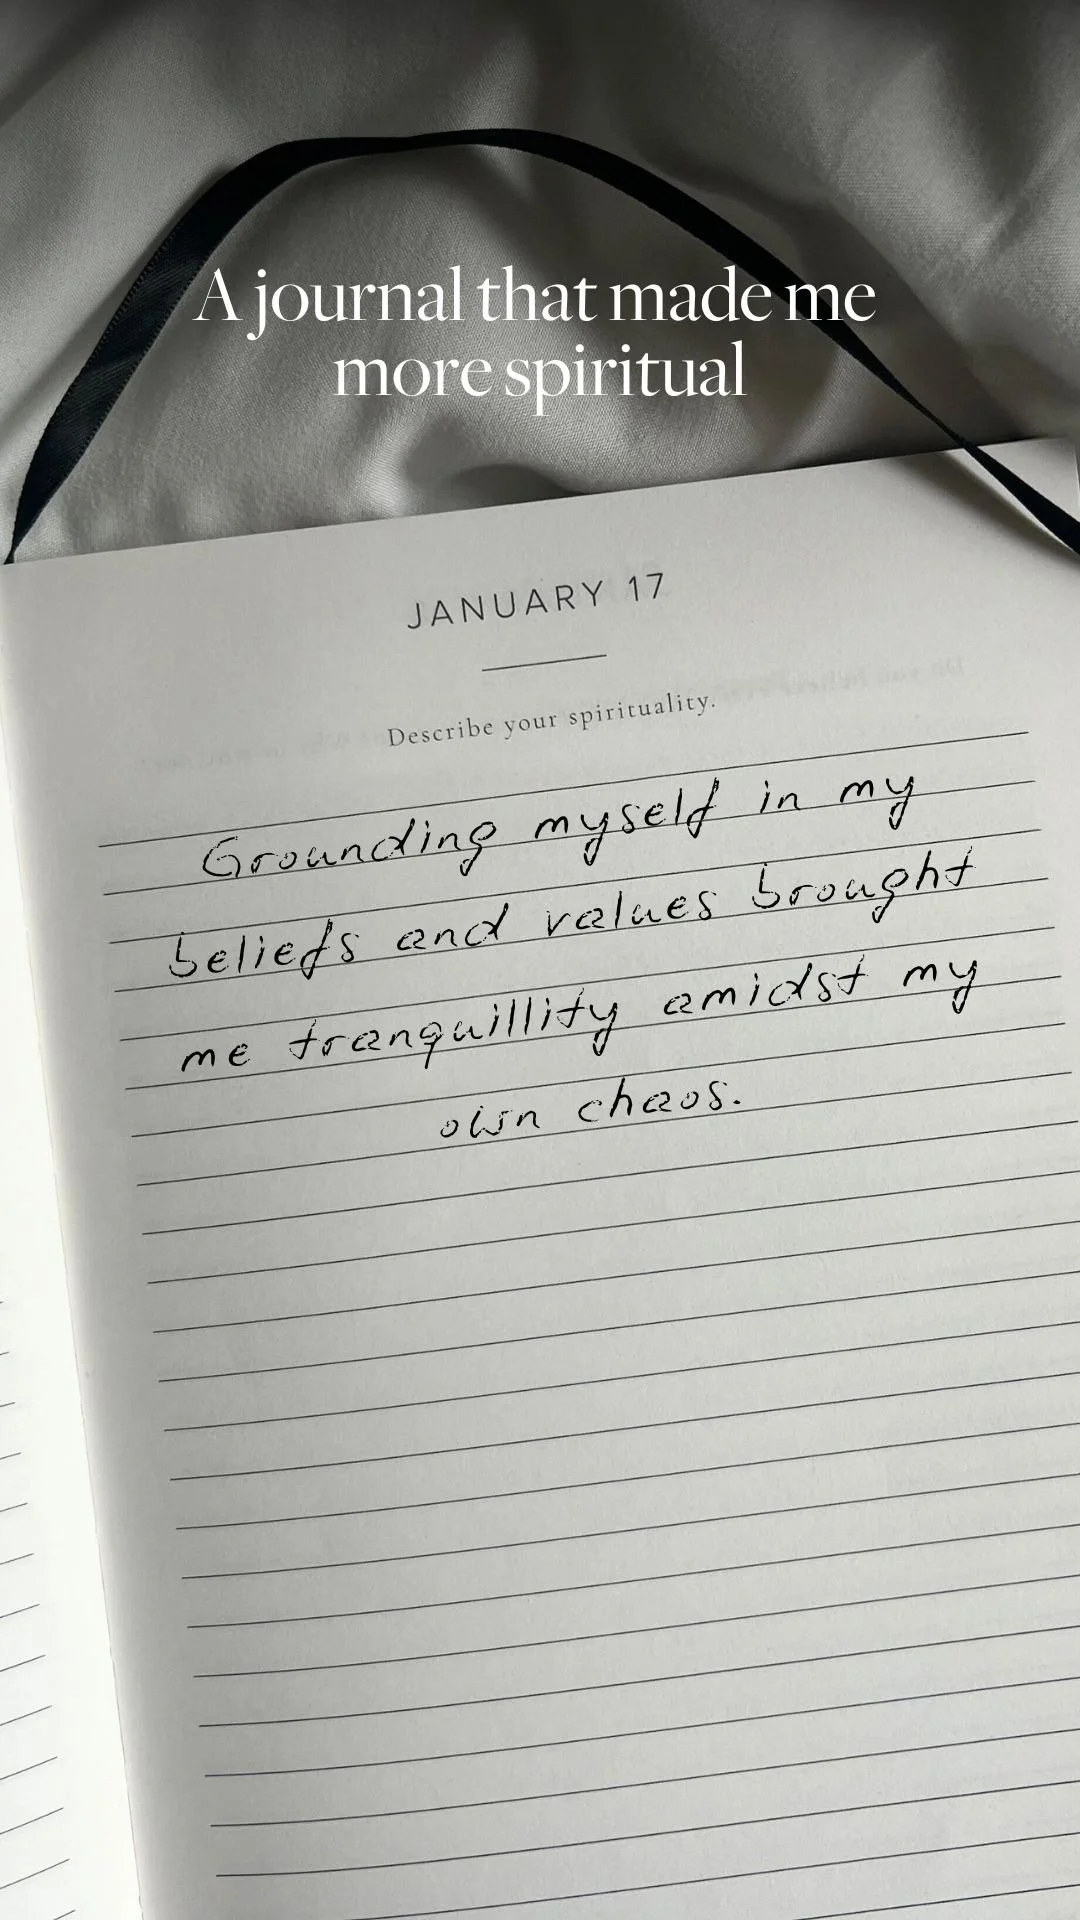 A journal that made me
more spiritual
JANUARY 17
Describe your spirituality.
Grounding myself in my
beliefs and values brought
me tranquillity amidst my
own chaos.